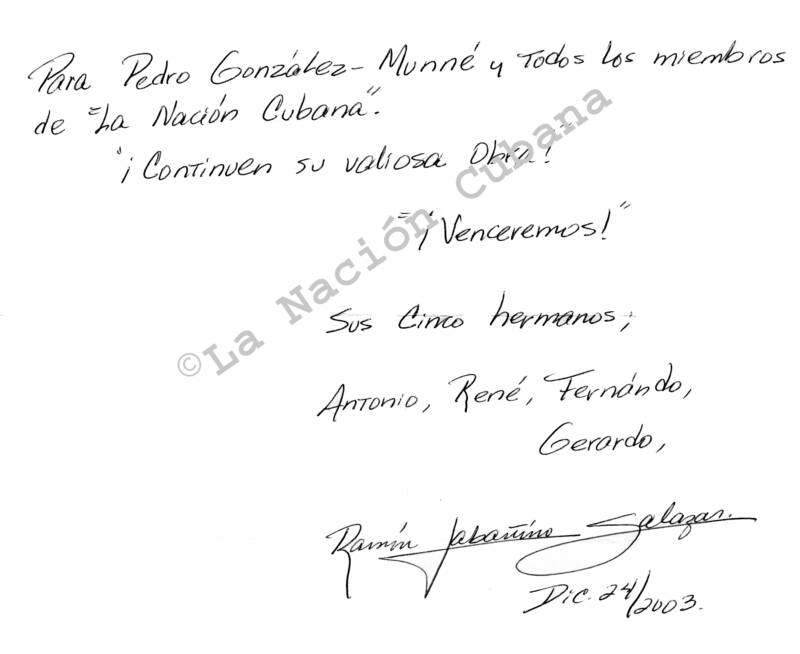 Para Pedro González-Munné y todos los miembros
de "La Nación Cubana".
"¡Continuen su valiosa Obra!"
"¡Venceremos!"
Sus Cinco hermanos;
Antonio, René, Fernándo,
Gerardo,
Ramón Labañino Salazar.
Dic. 24/2003.
©La Nación Cubana